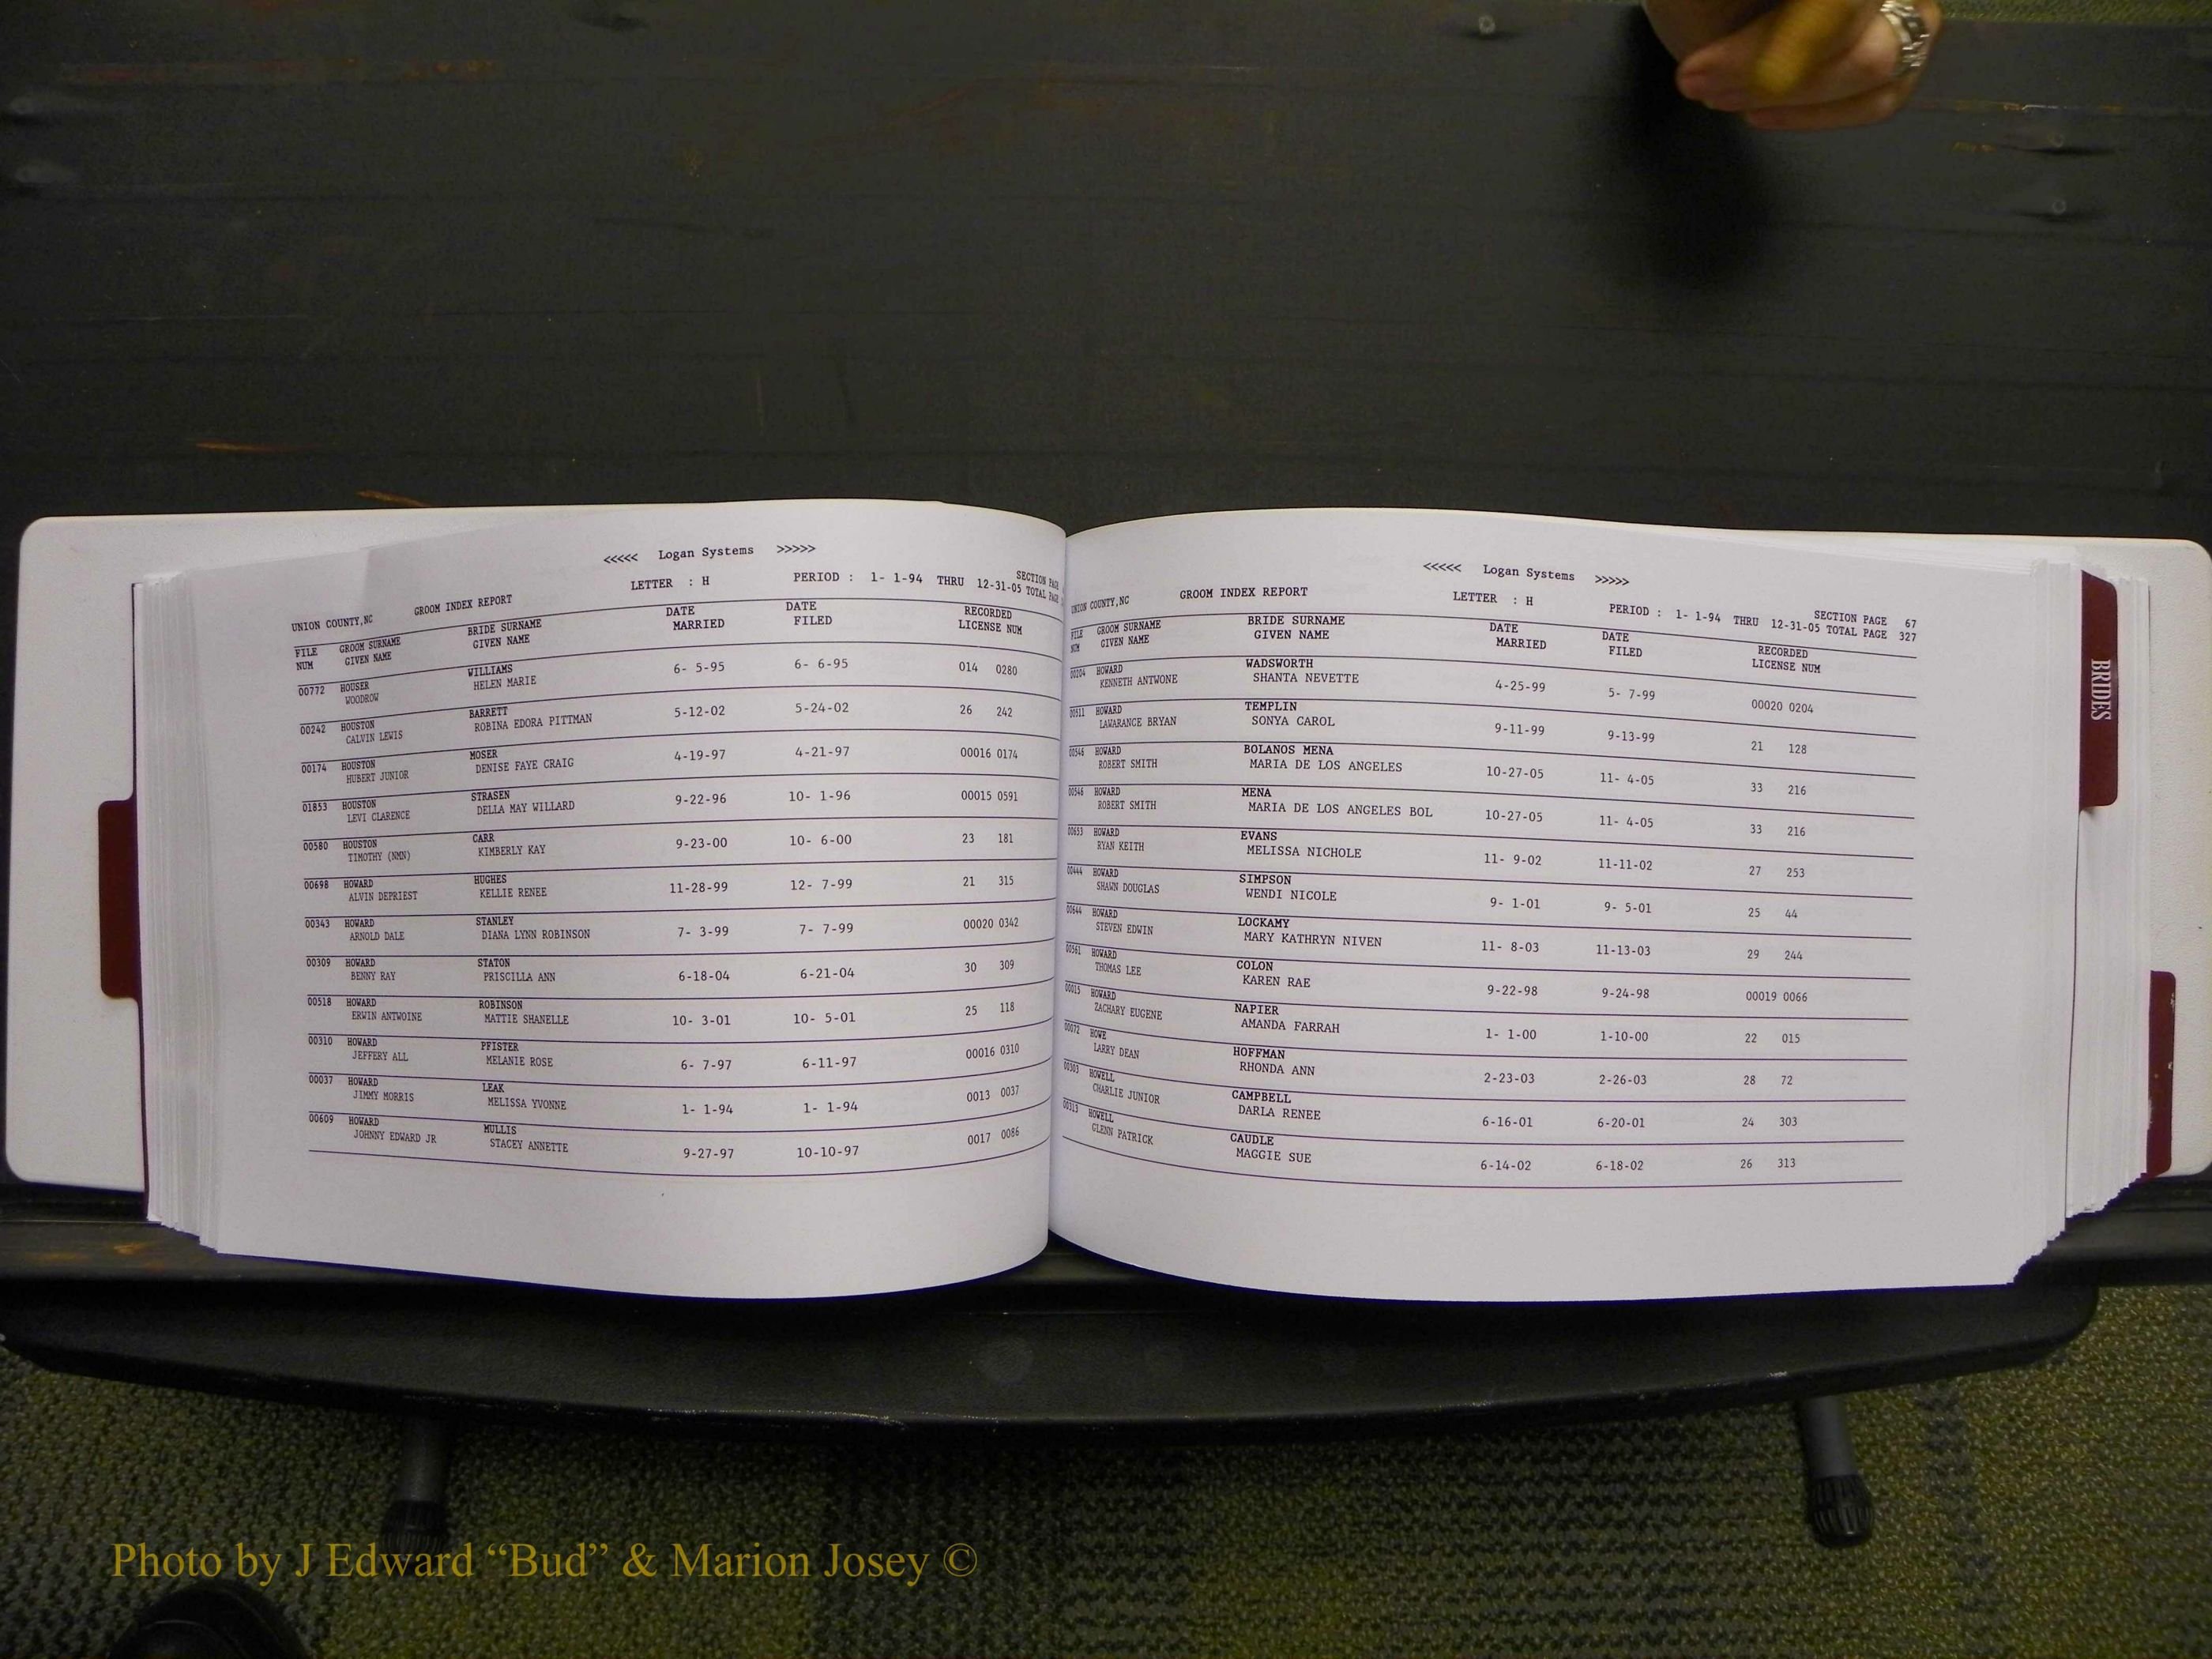 <<<<< Logan Systems >>>>>
UNION COUNTY,NC GROOM INDEX REPORT LETTER : H PERIOD : 1- 1-94 THRU 12-31-05 TOTAL PAGE
SECTION PAGE
FILE GROOM SURNAME BRIDE SURNAME DATE DATE RECORDED
NUM GIVEN NAME GIVEN NAME MARRIED FILED LICENSE NUM
00772 HOUSER WILLIAMS 6- 5-95 6- 6-95 014 0280
WOODROW HELEN MARIE
00242 HOUSTON BARRETT 5-12-02 5-24-02 26 242
CALVIN LEWIS ROBINA EDORA PITTMAN
00174 HOUSTON MOSER 4-19-97 4-21-97 00016 0174
HUBERT JUNIOR DENISE FAYE CRAIG
01853 HOUSTON STRASEN 9-22-96 10- 1-96 00015 0591
LEVI CLARENCE DELLA MAY WILLARD
00580 HOUSTON CARR 9-23-00 10- 6-00 23 181
TIMOTHY (NMN) KIMBERLY KAY
00698 HOWARD HUGHES 11-28-99 12- 7-99 21 315
ALVIN DEPRIEST KELLIE RENEE
00343 HOWARD STANLEY 7- 3-99 7- 7-99 00020 0342
ARNOLD DALE DIANA LYNN ROBINSON
00309 HOWARD STATON 6-18-04 6-21-04 30 309
BENNY RAY PRISCILLA ANN
00518 HOWARD ROBINSON 10- 3-01 10- 5-01 25 118
ERWIN ANTWOINE MATTIE SHANELLE
00310 HOWARD PFISTER 6- 7-97 6-11-97 00016 0310
JEFFERY ALL MELANIE ROSE
00037 HOWARD LEAK 1- 1-94 1- 1-94 0013 0037
JIMMY MORRIS MELISSA YVONNE
00609 HOWARD MULLIS 9-27-97 10-10-97 0017 0086
JOHNNY EDWARD JR STACEY ANNETTE
<<<<< Logan Systems >>>>>
UNION COUNTY,NC GROOM INDEX REPORT LETTER : H PERIOD : 1- 1-94 THRU 12-31-05 TOTAL PAGE 327
SECTION PAGE 67
FILE GROOM SURNAME BRIDE SURNAME DATE DATE RECORDED
NUM GIVEN NAME GIVEN NAME MARRIED FILED LICENSE NUM
00204 HOWARD WADSWORTH 4-25-99 5- 7-99 00020 0204
KENNETH ANTWONE SHANTA NEVETTE
00511 HOWARD TEMPLIN 9-11-99 9-13-99 21 128
LAWARANCE BRYAN SONYA CAROL
00546 HOWARD BOLANOS MENA 10-27-05 11- 4-05 33 216
ROBERT SMITH MARIA DE LOS ANGELES
00546 HOWARD MENA 10-27-05 11- 4-05 33 216
ROBERT SMITH MARIA DE LOS ANGELES BOL
00653 HOWARD EVANS 11- 9-02 11-11-02 27 253
RYAN KEITH MELISSA NICHOLE
00444 HOWARD SIMPSON 9- 1-01 9- 5-01 25 44
SHAWN DOUGLAS WENDI NICOLE
00644 HOWARD LOCKAMY 11- 8-03 11-13-03 29 244
STEVEN EDWIN MARY KATHRYN NIVEN
00561 HOWARD COLON 9-22-98 9-24-98 00019 0066
THOMAS LEE KAREN RAE
00015 HOWARD NAPIER 1- 1-00 1-10-00 22 015
ZACHARY EUGENE AMANDA FARRAH
00072 HOWE HOFFMAN 2-23-03 2-26-03 28 72
LARRY DEAN RHONDA ANN
00303 HOWELL CAMPBELL 6-16-01 6-20-01 24 303
CHARLIE JUNIOR DARLA RENEE
00313 HOWELL CAUDLE 6-14-02 6-18-02 26 313
GLENN PATRICK MAGGIE SUE
BRIDES
Photo by J Edward “Bud” & Marion Josey ©